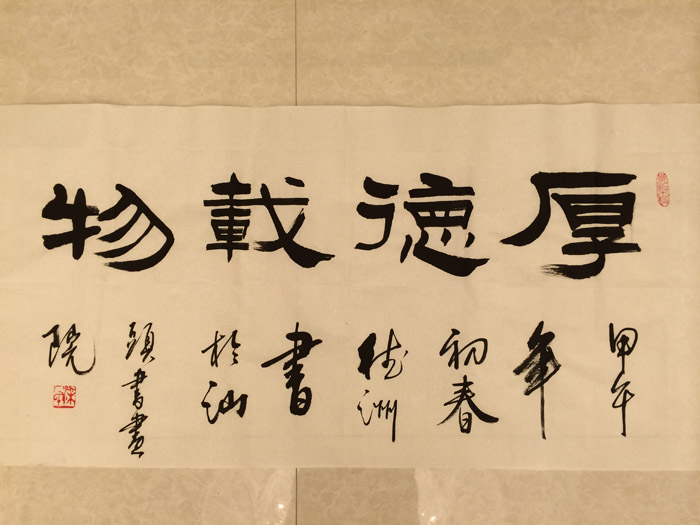 厚德載物
甲午
年
初春
洲
書
於汕
頭書畫
院